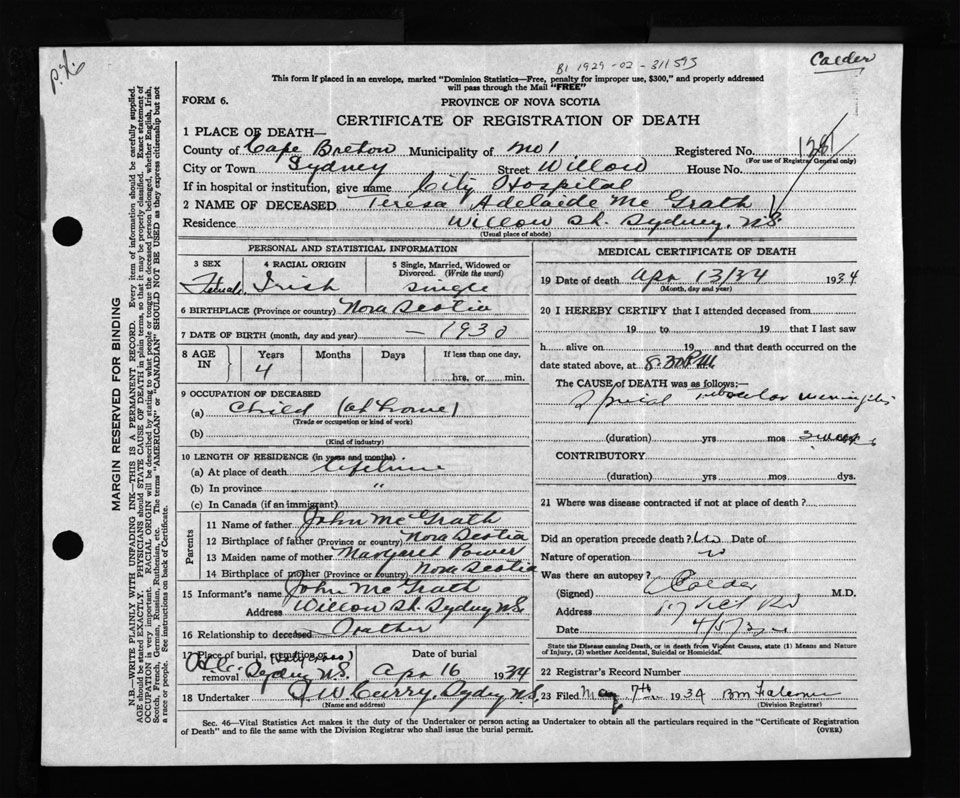 B1 1929-02-311593
Calder
This form if placed in an envelope, marked "Dominion Statistics—Free, penalty for improper use, $300," and properly addressed
will pass through the Mail "FREE"
FORM 6.
PROVINCE OF NOVA SCOTIA
CERTIFICATE OF REGISTRATION OF DEATH
1 PLACE OF DEATH—
County of Cape Breton Municipality of No 1 Registered No.
(For use of Registrar General only)
City or Town Sydney Street Willow House No.
If in hospital or institution, give name City Hospital
2 NAME OF DECEASED Teresa Adelaide Mc Grath
Residence Willow St. Sydney, N.S
(Usual place of abode)
PERSONAL AND STATISTICAL INFORMATION
3 SEX 4 RACIAL ORIGIN 5 Single, Married, Widowed or Divorced. (Write the word)
Female Irish Single
6 BIRTHPLACE (Province or country) Nova Scotia
7 DATE OF BIRTH (month, day and year) — 1930
8 AGE IN Years Months Days If less than one day,
4 hrs. or min.
9 OCCUPATION OF DECEASED
(a) Child (at home)
(Trade or occupation or kind of work)
(b)
(Kind of industry)
10 LENGTH OF RESIDENCE (in years and months)
(a) At place of death lifetime
(b) In province "
(c) In Canada (if an immigrant)
Parents
11 Name of father John Mc Grath
12 Birthplace of father (Province or country) Nova Scotia
13 Maiden name of mother Margaret Power
14 Birthplace of mother (Province or country) Nova Scotia
15 Informant's name John Mc Grath
Address Willow St. Sydney N.S.
16 Relationship to deceased Father
17 Place of burial, cremation or removal Date of burial
Sydney N.S. Apr 16 1934
18 Undertaker Curry. Sydney N.S.
(Name and address)
MEDICAL CERTIFICATE OF DEATH
19 Date of death Apr 13/34 1934
(Month, day and year)
20 I HEREBY CERTIFY that I attended deceased from
19 to 19 that I last saw
h alive on 19 and that death occurred on the
date stated above, at 8.30 PM
The CAUSE OF DEATH was as follows:—
Meningitis
(duration) yrs mos 3 weeks
CONTRIBUTORY
(duration) yrs mos. dys.
21 Where was disease contracted if not at place of death?
Did an operation precede death? No Date of
Nature of operation
Was there an autopsy?
(Signed) Calder M.D.
Address
Date 4/5/34
State the Disease causing Death, or in death from Violent Causes, state (1) Means and
Nature of Injury, (2) whether Accidental, Suicidal or Homicidal.
22 Registrar's Record Number
23 Filed May 7th 1934
(Division Registrar)
Sec. 46—Vital Statistics Act makes it the duty of the Undertaker or person acting as Undertaker to obtain all the particulars required in the "Certificate of Registration
of Death" and to file the same with the Division Registrar who shall issue the burial permit.
(OVER)
MARGIN RESERVED FOR BINDING
N.B.—WRITE PLAINLY WITH UNFADING INK—THIS IS A PERMANENT RECORD. Every item of information should be carefully supplied.
AGE should be stated EXACTLY. PHYSICIANS should STATE CAUSE OF DEATH in plain terms, so that it may be properly classified. Exact statement of
OCCUPATION is very important. RACIAL ORIGIN will be described by stating to what people or tongue the deceased person belonged, whether English, Irish,
Scotch, French, German, Russian, Ruthenian, etc. The terms "AMERICAN" or "CANADIAN" SHOULD NOT BE USED as they express citizenship but not
a race or people. See instructions on back of Certificate.